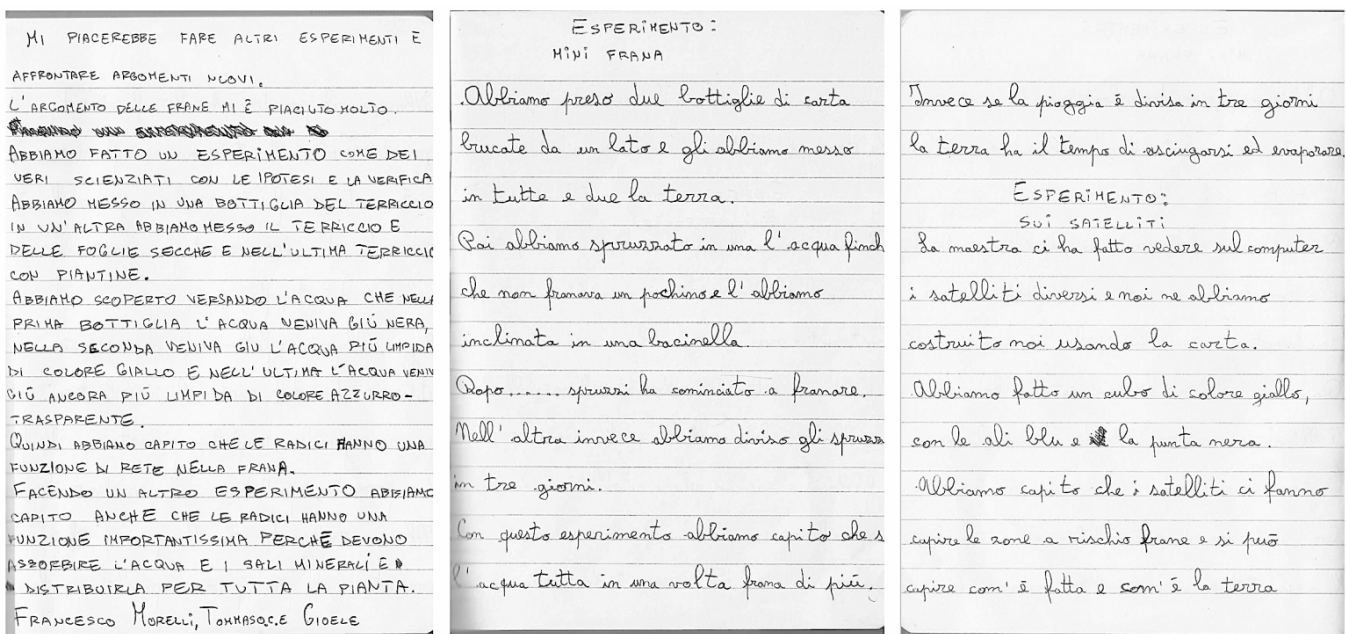 MI PIACEREBBE FARE ALTRI ESPERIMENTI E
AFFRONTARE ARGOMENTI NUOVI.
L'ARGOMENTO DELLE FRANE MI È PIACIUTO MOLTO.
ABBIAMO FATTO UN ESPERIMENTO COME DEI
VERI SCIENZIATI CON LE IPOTESI E LA VERIFICA
ABBIAMO MESSO IN UNA BOTTIGLIA DEL TERRICCIO
IN UN'ALTRA ABBIAMO MESSO IL TERRICCIO E
DELLE FOGLIE SECCHE E NELL'ULTIMA TERRICCIO
CON PIANTINE.
ABBIAMO SCOPERTO VERSANDO L'ACQUA CHE NELL
PRIMA BOTTIGLIA L'ACQUA VENIVA GIÙ NERA,
NELLA SECONDA VENIVA GIU L'ACQUA PIÙ LIMPIDA
DI COLORE GIALLO E NELL'ULTIMA L'ACQUA VENIV
GIÙ ANCORA PIÙ LIMPIDA DI COLORE AZZURRO-
TRASPARENTE.
QUINDI ABBIAMO CAPITO CHE LE RADICI HANNO UNA
FUNZIONE DI RETE NELLA FRANA.
FACENDO UN ALTRO ESPERIMENTO ABBIAMO
CAPITO ANCHE CHE LE RADICI HANNO UNA
FUNZIONE IMPORTANTISSIMA PERCHÈ DEVONO
ASSORBIRE L'ACQUA E I SALI MINERALI E
DISTRIBUIRLA PER TUTTA LA PIANTA.
FRANCESCO MORELLI, TOMMASO.C.E GIOELE
ESPERIMENTO:
MINI FRANA
Abbiamo preso due bottiglie di carta
brucate da un lato e gli abbiamo messo
in tutte e due la terra.
Poi abbiamo spruzzato in una l'acqua finch
che non franava un pochino e l'abbiamo
inclinata in una bacinella.
Dopo...... spruzzi ha cominciato a franare.
Nell'altra invece abbiamo diviso gli spruzz
in tre giorni.
Con questo esperimento abbiamo capito che s
l'acqua tutta in una volta frana di più.
Invece se la pioggia è divisa in tre giorni
la terra ha il tempo di asciugarsi ed evaporare.
ESPERIMENTO:
SUI SATELLITI
La maestra ci ha fatto vedere sul computer
i satelliti diversi e noi ne abbiamo
costruito noi usando la carta.
Abbiamo fatto un cubo di colore giallo,
con le ali blu e la punta nera.
Abbiamo capito che i satelliti ci fanno
capire le zone a rischio frane e si può
capire com'è fatta e com'è la terra